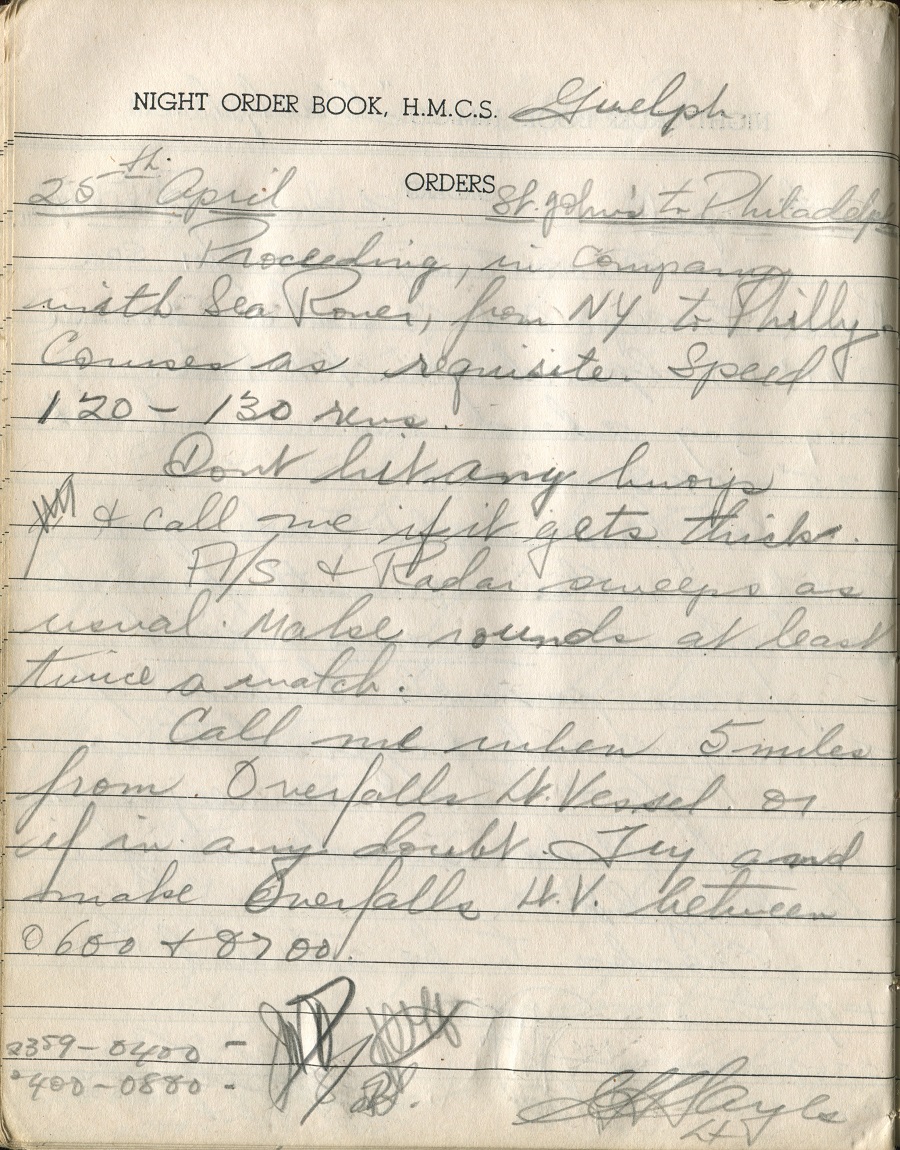 NIGHT ORDER BOOK, H.M.C.S. Guelph
ORDERS
25th April St. John's to Philadelph
Proceeding, in company
with Sea Rover, from NY to Philly.
Courses as requisite. Speed
120 - 130 revs.
Dont hit any buoys
& call me if it gets thick.
A/S & Radar sweeps as
usual. Make rounds at least
twice a watch.
Call me when 5 miles
from Overfalls Lt. Vessel or
if in any doubt. Try and
make Overfalls Lt. V. between
0600 & 0700.
2359 - 0400 -
0400 - 0800 -
Lt